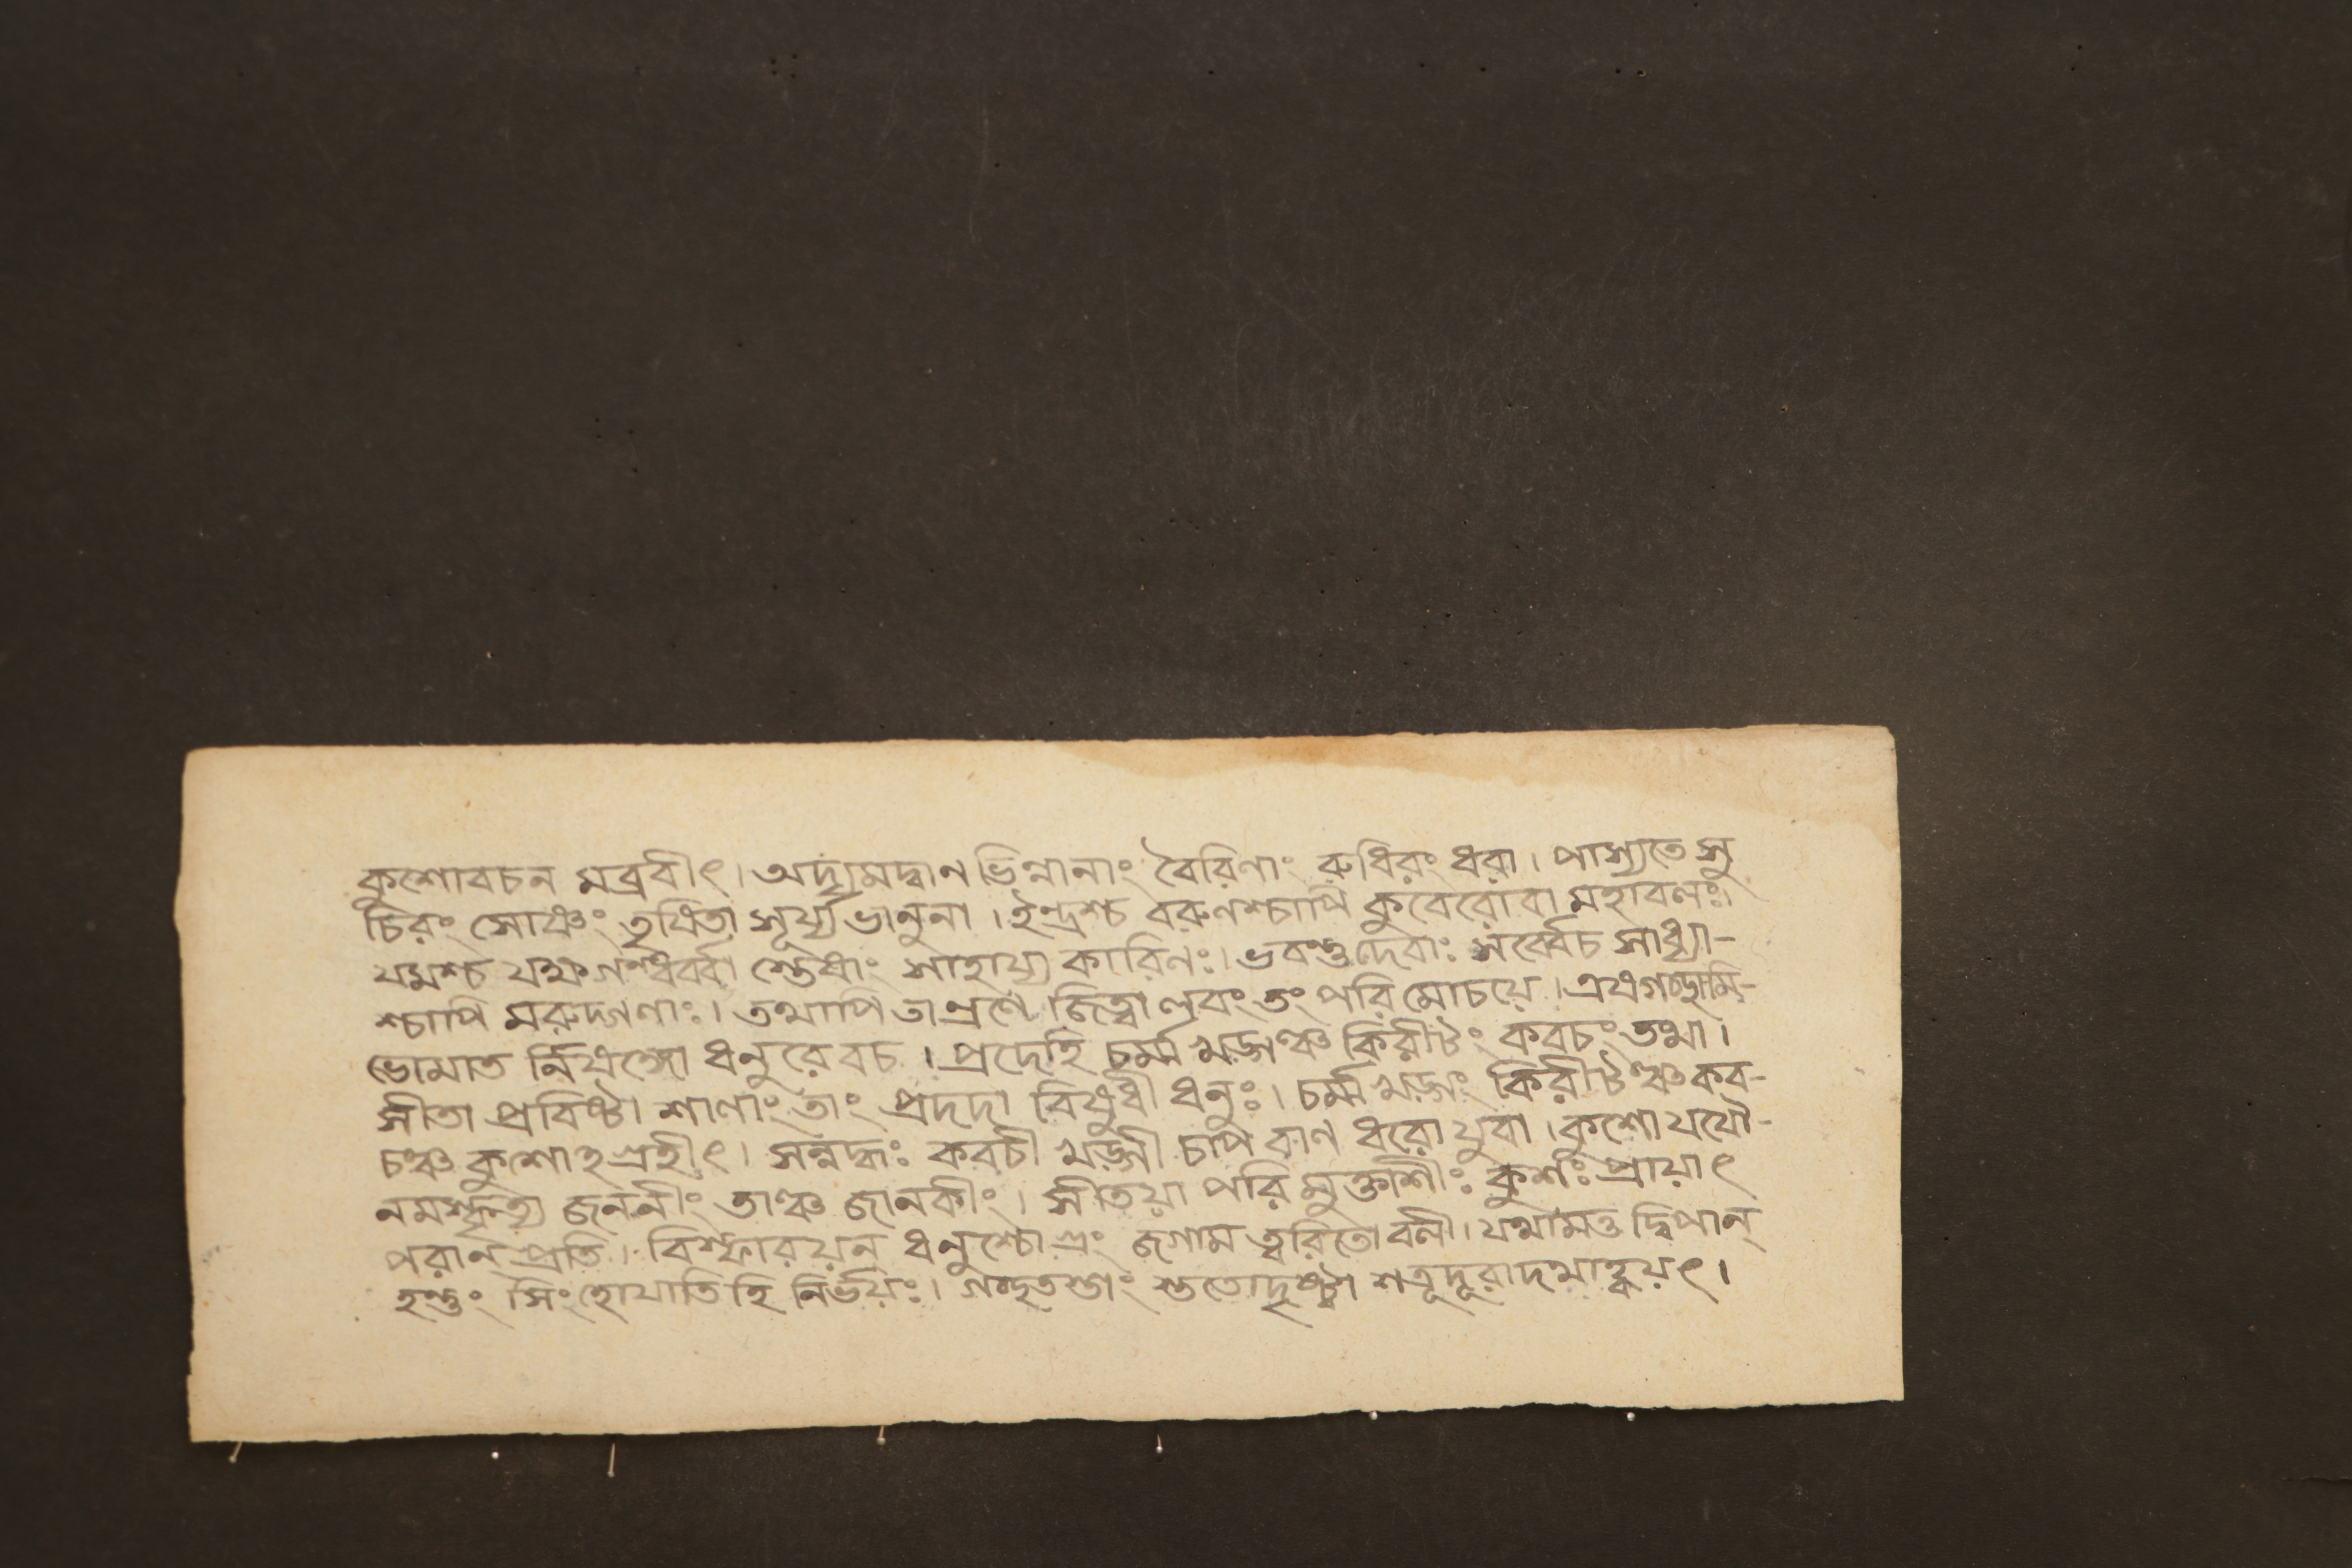 কুশোবচন মব্রবীৎ। অদ্যমদ্বাণ ভিন্নানাং বৈরিণাং রুধিরং ধরা। পাস্যতে সু
চিরং সোঞ্চং তৃষিতা সূর্য্য ভানুনা। ইন্দ্রশ্চ বরুণশ্চাপি কুবেরোবা মহাবলঃ।
যমশ্চ যক্ষ গন্ধর্ব্বা স্তেষাং সাহায্য কারিণঃ। ভবন্তুদেবাঃ সর্ব্বেচ সাধ্যা-
শ্চাপি মরুদ্গণাঃ। তথাপি তান্রণে জিত্বা লবং তং পরি মোচয়ে। এষগচ্ছামি-
ভোমাত র্নিষঙ্গো ধনুরে বচ। প্রদেহি চর্ম্ম খড়্গঞ্চ কিরীটং কবচং তথা।
সীতা প্রবিষ্টা শালাং তাং প্রদদা বিষুধী ধনুঃ। চর্ম্ম খড়্গং কিরীটঞ্চ কব-
চঞ্চ কুশোহ গ্রহীৎ। সন্নদ্ধঃ কবচী খড়্গী চাপ বাণ ধরো যুবা। কুশো যযৌ-
নমস্কৃত্য জননীং তাঞ্চ জানকীং। সীতয়া পরি মুক্তাশীঃ কুশঃ প্রায়াৎ
পরান্ প্রতি। বিস্ফারয়ন্ ধনুশ্চোগ্রং জগাম ত্বরিতো বলী। যথামত্ত দ্বিপান্
হন্তুং সিংহোযাতি হি নির্ভয়ঃ। গচ্ছতস্তাং স্ততোদৃষ্ট্বা শত্রূদূরাদথাহ্বয়ৎ।